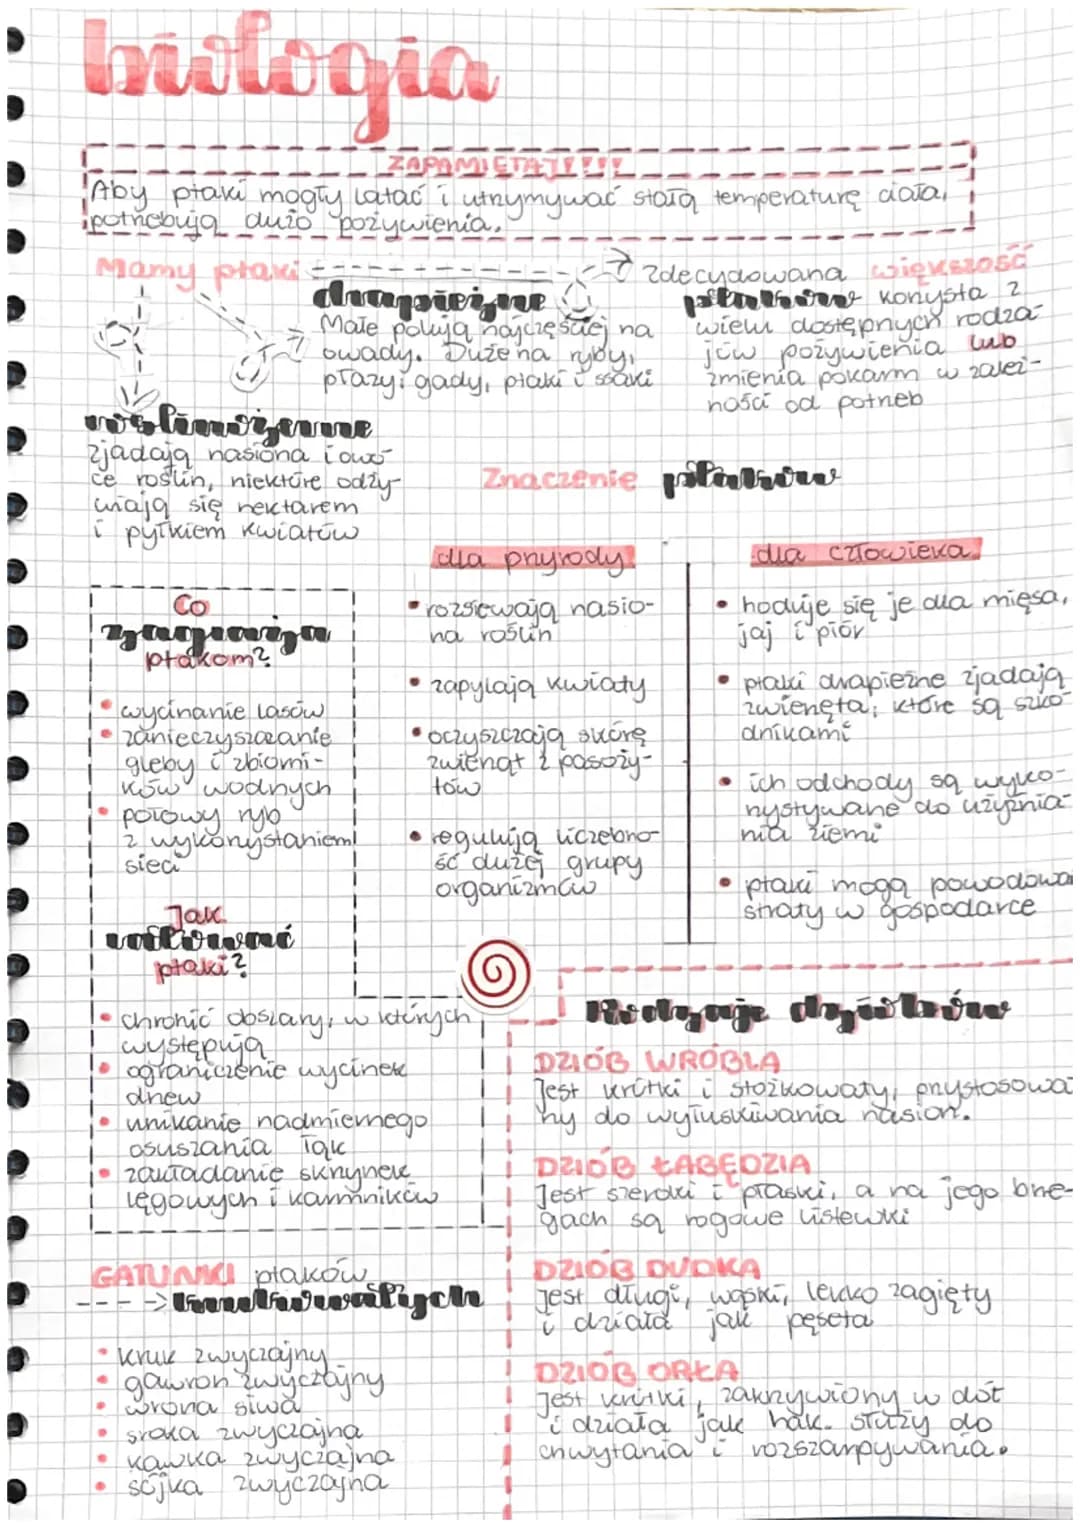 biologia
ZAPAMIĘTAJ!!!!
Aby ptaki mogły latać i utrzymywać stałą temperaturę ciała,
potrzebują dużo pożywienia.
Mamy ptaki
drapieżne
Małe polują najczęściej na
owady. Duże na ryby,
płazy, gady, ptaki i ssaki
zdecydowana większość
ptaków korzysta z
wielu dostępnych rodza-
jów pożywienia lub
zmienia pokarm w zależ-
ności od potrzeb
roślinożerne
zjadają nasiona i owo-
ce roślin, niektóre odży-
wiają się nektarem
i pyłkiem kwiatów
Znaczenie ptaków
dla przyrody
• rozsiewają nasio-
na roślin
• zapylają kwiaty
• oczyszczają skórę
zwierząt z pasoży-
tów
• regulują liczebno-
ść dużej grupy
organizmów
dla człowieka
• hoduje się je dla mięsa,
jaj i piór
• ptaki drapieżne zjadają
zwierzęta, które są szko-
dnikami
• ich odchody są wyko-
rzystywane do użyźnia-
nia ziemi
• ptaki mogą powodowa
straty w gospodarce
Co
zagraża
ptakom?
• wycinanie lasów
• zanieczyszczanie
gleby i zbiorni-
ków wodnych
• połowy ryb
z wykorzystaniem
sieci
Jak
ratować
ptaki?
• chronić obszary, w których
występują
• ograniczenie wycinek
drzew
• unikanie nadmiernego
osuszania łąk
• zakładanie skrzynek
lęgowych i karmników
GATUNKI ptaków
krukowatych
• kruk zwyczajny
• gawron zwyczajny
• wrona siwa
• sroka zwyczajna
• kawka zwyczajna
• sójka zwyczajna
Rodzaje dziobów
DZIÓB WRÓBLA
Jest krótki i stożkowaty, przystosowa
ny do wyłuskiwania nasion.
DZIÓB ŁABĘDZIA
Jest szeroki i płaski, a na jego brze-
gach są rogowe listewki
DZIÓB DUDKA
Jest długi, wąski, lekko zagięty
i działa jak pęseta
DZIÓB ORŁA
Jest krótki, zakrzywiony w dół
i działa jak hak. Służy do
chwytania i rozszarpywania.